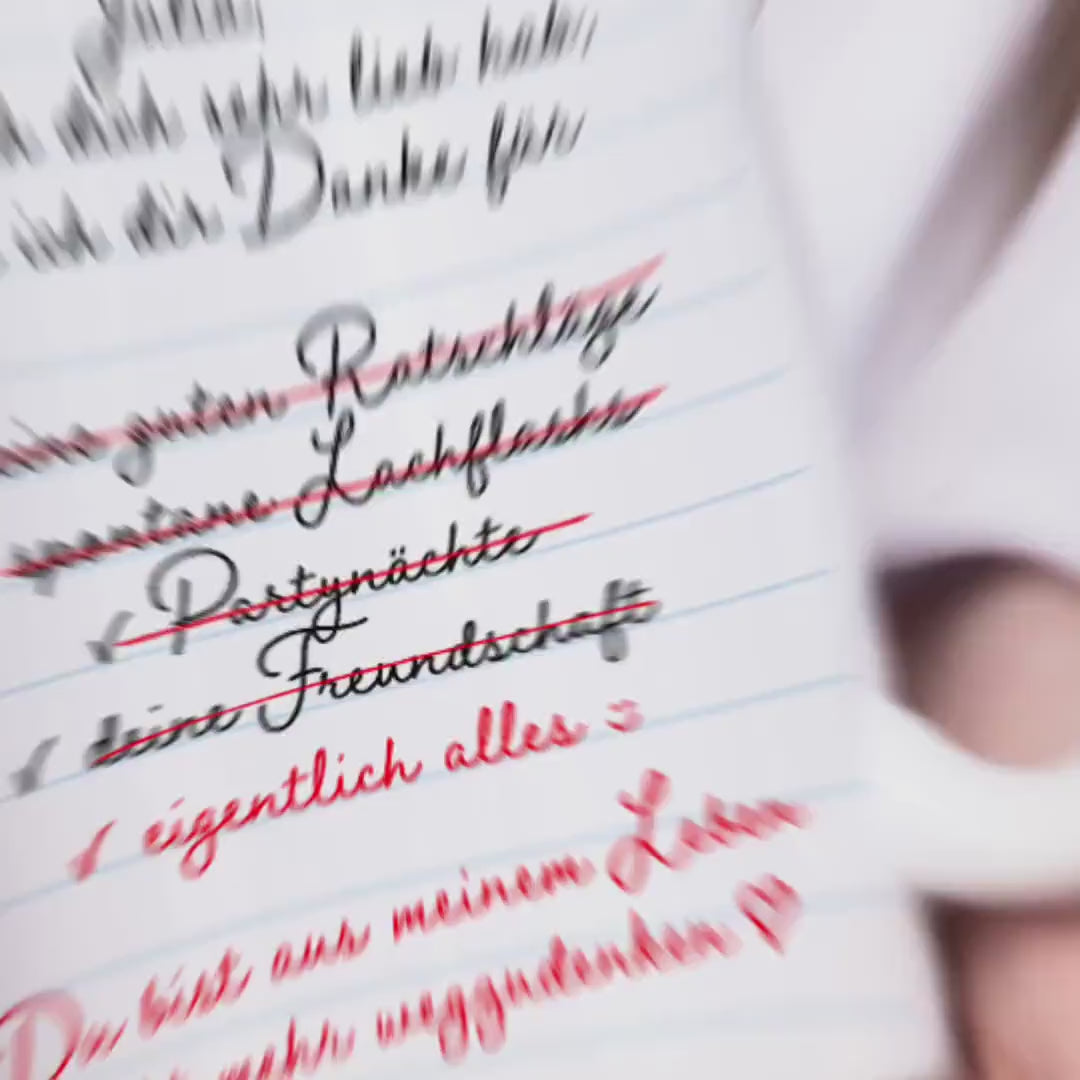 dich sehr lieb hab,
ich dir Danke für
guten Ratschläge
spontane Lachflashs
✓ Partynächte
✓ deine Freundschaft
✓ eigentlich alles :)
Du bist aus meinem Leben
mehr wegzudenken ♡